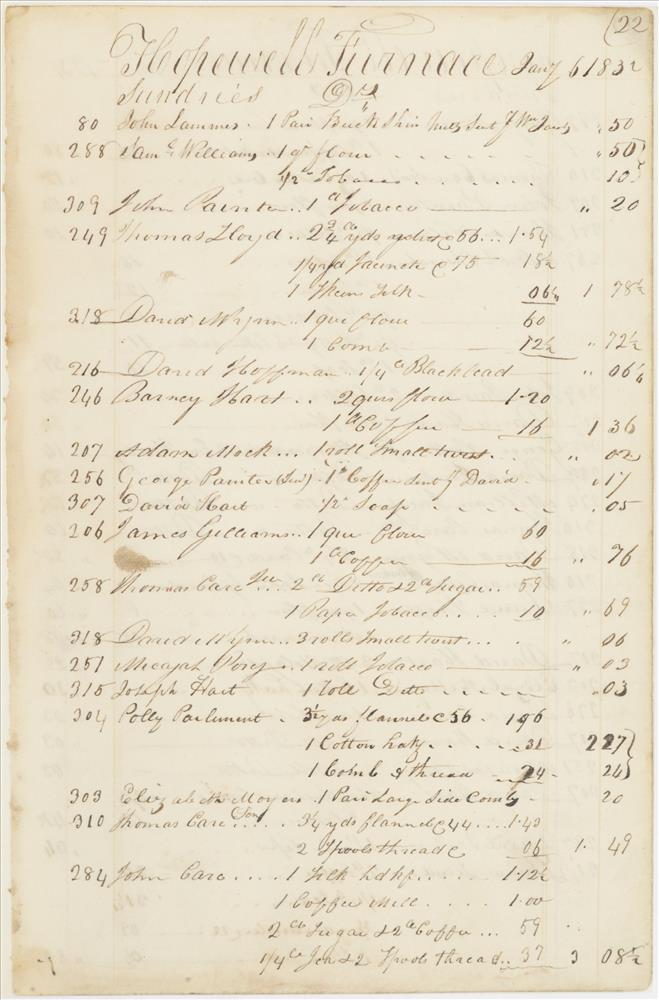 (22
Hopewell Furnace Jany 6 1832
Sundries Drs
80 John Lammes . 1 Pair Buck Skin Sent Wm " 50
288 Saml Williams . 1 qr flour . . . . . " 50
1/2 lb Tobacco . . . . . . 10
309 John Painter .. 1 lb Tobacco " 20
249 Thomas Lloyd .. 2 3/4 yds @ 56 ... 1.54
1/4 yd @ 75 18 3/4
1 Skein Silk 06 1/4 1 78 1/2
318 David Wynn .. 1 qur flour 60
1 Comb 12 1/2 " 72 1/2
216 David Hoffman . 1/4 lb Blacklead " 06 1/4
246 Barney Hart .. 2 qurs flour 1.20
1 lb Coffee 16 1 36
207 Adam Mock ... 1 roll Small twist . . " 02
256 George Painter (Senr) . 1 lb Coffee Sent David . " 17
307 David Hart 1/2 lb Soap . . . . . . 05
206 James Gilliams .. 1 qur flour 60
1 lb Coffee 16 " 76
258 Thomas Care .... 2 lb Ditto & 2 lb Sugar .. 59
1 Paper Tobacco .... 10 " 69
318 David Wynn ... 3 rolls Small twist ... " 06
251 Micajah Posey .. 1 roll Tobacco " 03
315 Joseph Hart 1 roll Ditto . . . . . " 03
304 Polly Parlement . 3 1/2 yds flannel @ 56 . 196
1 Cotton hdkf . . . . . 31 2 27
1 Comb & thread 24 . 24
303 Elizabeth Moyers . 1 Pair Large Side Combs - 20
310 Thomas Care (Son) .... 3 1/4 yds flannel @ 44 .... 1.43
2 Spools thread @ 06 1. 49
284 John Care .... 1 Silk hdkf ..... 1.12 1/2
1 Coffee Mill .... 1.00
2 lb Sugar & 2 lb Coffee ... 59
1/4 lb Tea & 2 Spools thread .. 37 3 08 1/2